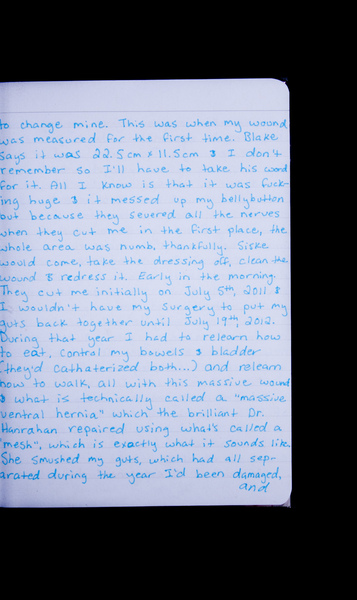 to change mine. This was when my wound
was measured for the first time. Blake
says it was 22.5cm x 11.5cm & I don't
remember so I'll have to take his word
for it. All I know is that it was fuck-
ing huge & it messed up my bellybutton
but because they severed all the nerves
when they cut me in the first place, the
whole area was numb, thankfully. Siske
would come, take the dressing off, clean the
wound & redress it. Early in the morning.
They cut me initially on July 5th, 2011 &
I wouldn't have my surgery to put my
guts back together until July 19th, 2012.
During that year I had to relearn how
to eat, control my bowels & bladder
(they'd cathaterized both...) and relearn
how to walk, all with this massive wound
& what is technically called a "massive
ventral hernia" which the brilliant Dr.
Hanrahan repaired using what's called a
"mesh", which is exactly what it sounds like.
She smushed my guts, which had all sep-
arated during the year I'd been damaged,
and